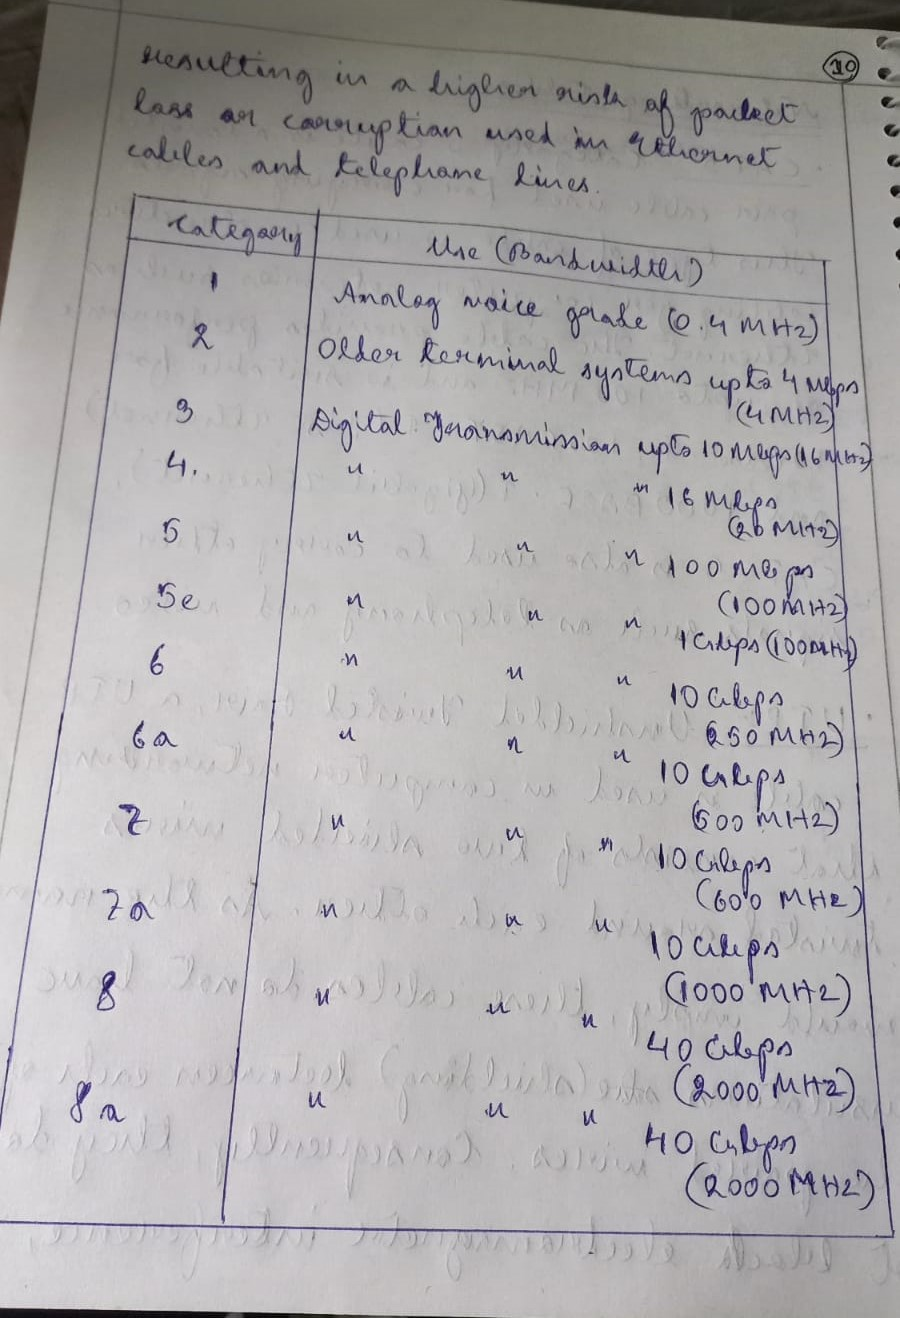 10
resulting in a higher risk of packet
loss or corruption used in ethernet
cables and telephone lines.
Category Use (Bandwidth)
1 Analog voice grade (0.4 MHz)
2 Older terminal systems upto 4 Mbps
(4 MHz)
3 Digital Transmission upto 10 Mbps (16 MHz)
4. " " " 16 Mbps
(20 MHz)
5 " " " 100 Mbps
(100 MHz)
5e " " " 1 Gbps (100 MHz)
6 " " " 10 Gbps
(250 MHz)
6a " " " 10 Gbps
(500 MHz)
7 " " " 10 Gbps
(600 MHz)
7a " " " 10 Gbps
(1000 MHz)
8 " " " 40 Gbps
(2000 MHz)
8a " " " 40 Gbps
(2000 MHz)